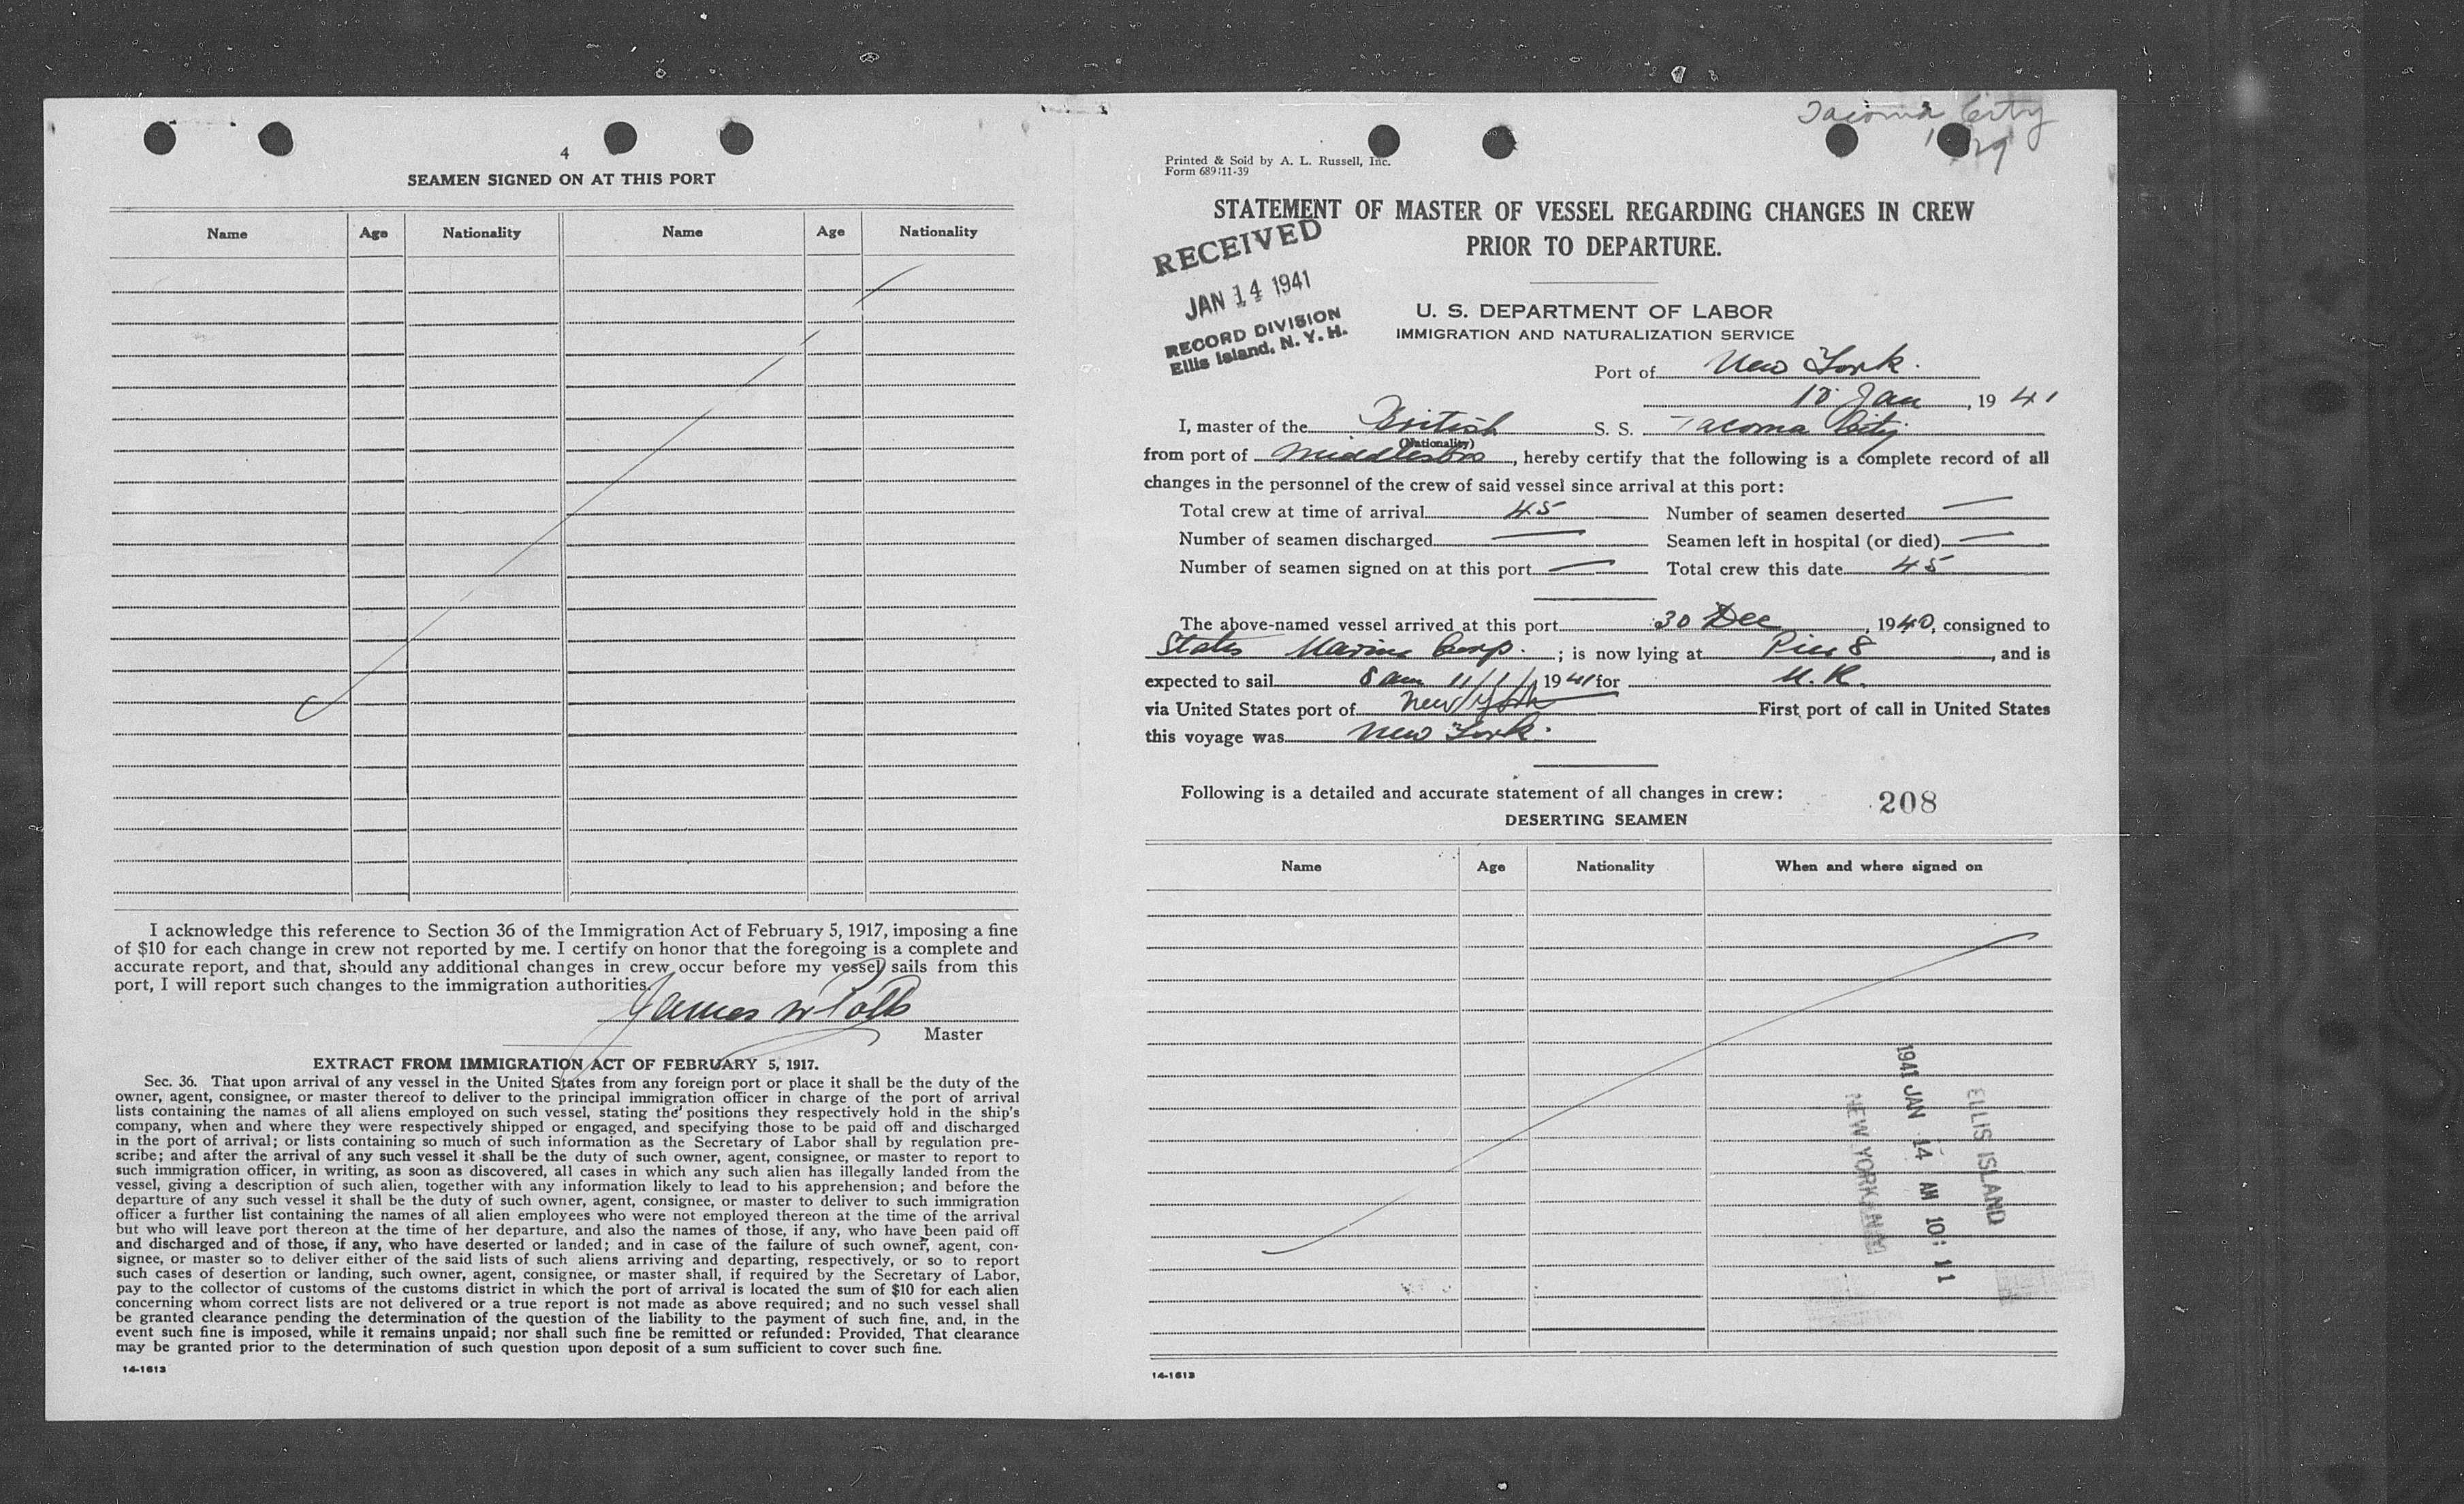 4
SEAMEN SIGNED ON AT THIS PORT
Name Age Nationality Name Age Nationality
I acknowledge this reference to Section 36 of the Immigration Act of February 5, 1917, imposing a fine
of $10 for each change in crew not reported by me. I certify on honor that the foregoing is a complete and
accurate report, and that, should any additional changes in crew occur before my vessel sails from this
port, I will report such changes to the immigration authorities.
James W
Master
EXTRACT FROM IMMIGRATION ACT OF FEBRUARY 5, 1917.
Sec. 36. That upon arrival of any vessel in the United States from any foreign port or place it shall be the duty of the
owner, agent, consignee, or master thereof to deliver to the principal immigration officer in charge of the port of arrival
lists containing the names of all aliens employed on such vessel, stating the positions they respectively hold in the ship's
company, when and where they were respectively shipped or engaged, and specifying those to be paid off and discharged
in the port of arrival; or lists containing so much of such information as the Secretary of Labor shall by regulation pre-
scribe; and after the arrival of any such vessel it shall be the duty of such owner, agent, consignee, or master to report to
such immigration officer, in writing, as soon as discovered, all cases in which any such alien has illegally landed from the
vessel, giving a description of such alien, together with any information likely to lead to his apprehension; and before the
departure of any such vessel it shall be the duty of such owner, agent, consignee, or master to deliver to such immigration
officer a further list containing the names of all alien employees who were not employed thereon at the time of the arrival
but who will leave port thereon at the time of her departure, and also the names of those, if any, who have been paid off
and discharged and of those, if any, who have deserted or landed; and in case of the failure of such owner, agent, con-
signee, or master so to deliver either of the said lists of such aliens arriving and departing, respectively, or so to report
such cases of desertion or landing, such owner, agent, consignee, or master shall, if required by the Secretary of Labor,
pay to the collector of customs of the customs district in which the port of arrival is located the sum of $10 for each alien
concerning whom correct lists are not delivered or a true report is not made as above required; and no such vessel shall
be granted clearance pending the determination of the question of the liability to the payment of such fine, and, in the
event such fine is imposed, while it remains unpaid; nor shall such fine be remitted or refunded: Provided, That clearance
may be granted prior to the determination of such question upon deposit of a sum sufficient to cover such fine.
14-1613
Tacoma City
Printed & Sold by A. L. Russell, Inc.
Form 689:11-39
STATEMENT OF MASTER OF VESSEL REGARDING CHANGES IN CREW
PRIOR TO DEPARTURE.
RECEIVED
JAN 14 1941
RECORD DIVISION
Ellis Island, N. Y. H.
U. S. DEPARTMENT OF LABOR
IMMIGRATION AND NATURALIZATION SERVICE
Port of New York.
10 Jan, 1941
I, master of the British S. S. Tacoma City
(Nationality)
from port of Middlesbro, hereby certify that the following is a complete record of all
changes in the personnel of the crew of said vessel since arrival at this port:
Total crew at time of arrival 45 Number of seamen deserted —
Number of seamen discharged — Seamen left in hospital (or died) —
Number of seamen signed on at this port — Total crew this date 45
The above-named vessel arrived at this port 30 Dec, 1940, consigned to
States Marine Corp.; is now lying at Pier 8, and is
expected to sail 8 am 11/1/ 1941 for U.K.
via United States port of New York First port of call in United States
this voyage was New York.
Following is a detailed and accurate statement of all changes in crew:
208
DESERTING SEAMEN
Name Age Nationality When and where signed on
ELLIS ISLAND
1941 JAN 14 AM 10:11
NEW YORK
14-1613